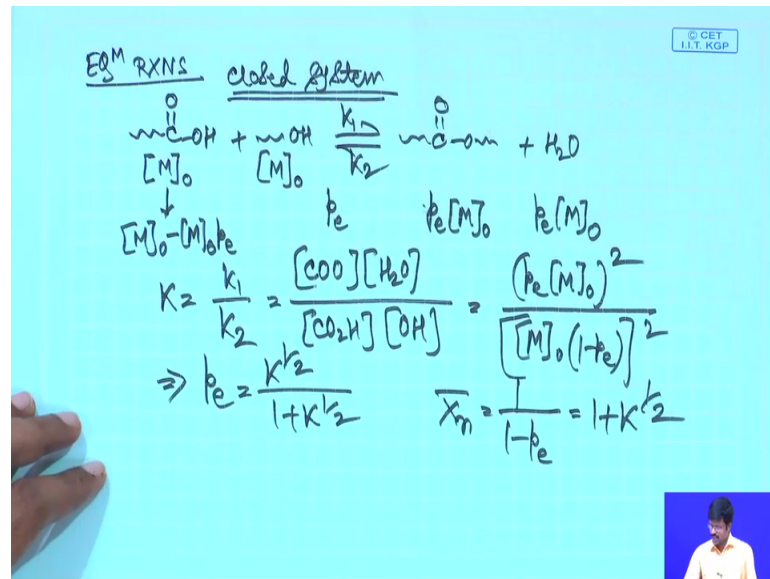 © CET
I.I.T. KGP
EQᴹ RXNS closed system
O O
~C-OH + ~OH ⇌ ~C-O~ + H₂O
k₁
k₂
[M]₀ [M]₀
↓
[M]₀-[M]₀pₑ pₑ pₑ[M]₀ pₑ[M]₀
K = k₁/k₂ = [COO][H₂O]/[CO₂H][OH] = (pₑ[M]₀)²/[[M]₀(1-pₑ)]²
⇒ pₑ = K^½/1+K^½ X̄n = 1/1-pₑ = 1+K^½